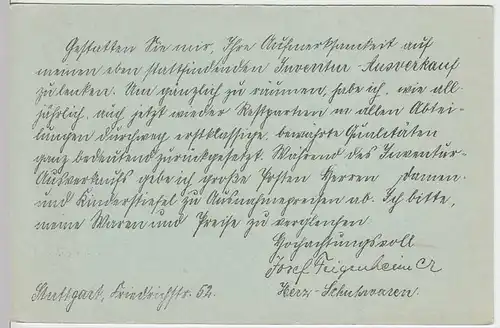 Gestatten Sie mir, Ihre Aufmerksamkeit auf
meinen eben stattfindenden Inventur-Ausverkauf
zu lenken. Um gänzlich zu räumen, habe ich, wie all-
jährlich, auch jetzt wieder Restpartien in allen Abtei-
lungen durchweg erstklassige, bewährte Qualitäten
ganz bedeutend zurückgesetzt. Während des Inventur-
Ausverkaufs gebe ich große Posten Herren Damen
und Kinderstiefel zu Ausnahmepreisen ab. Ich bitte,
meine Waren und Preise zu vergleichen
Hochachtungsvoll
Josef Feigenheimer
Stuttgart, Friedrichstr. 62.
Herz-Schuhwaren.